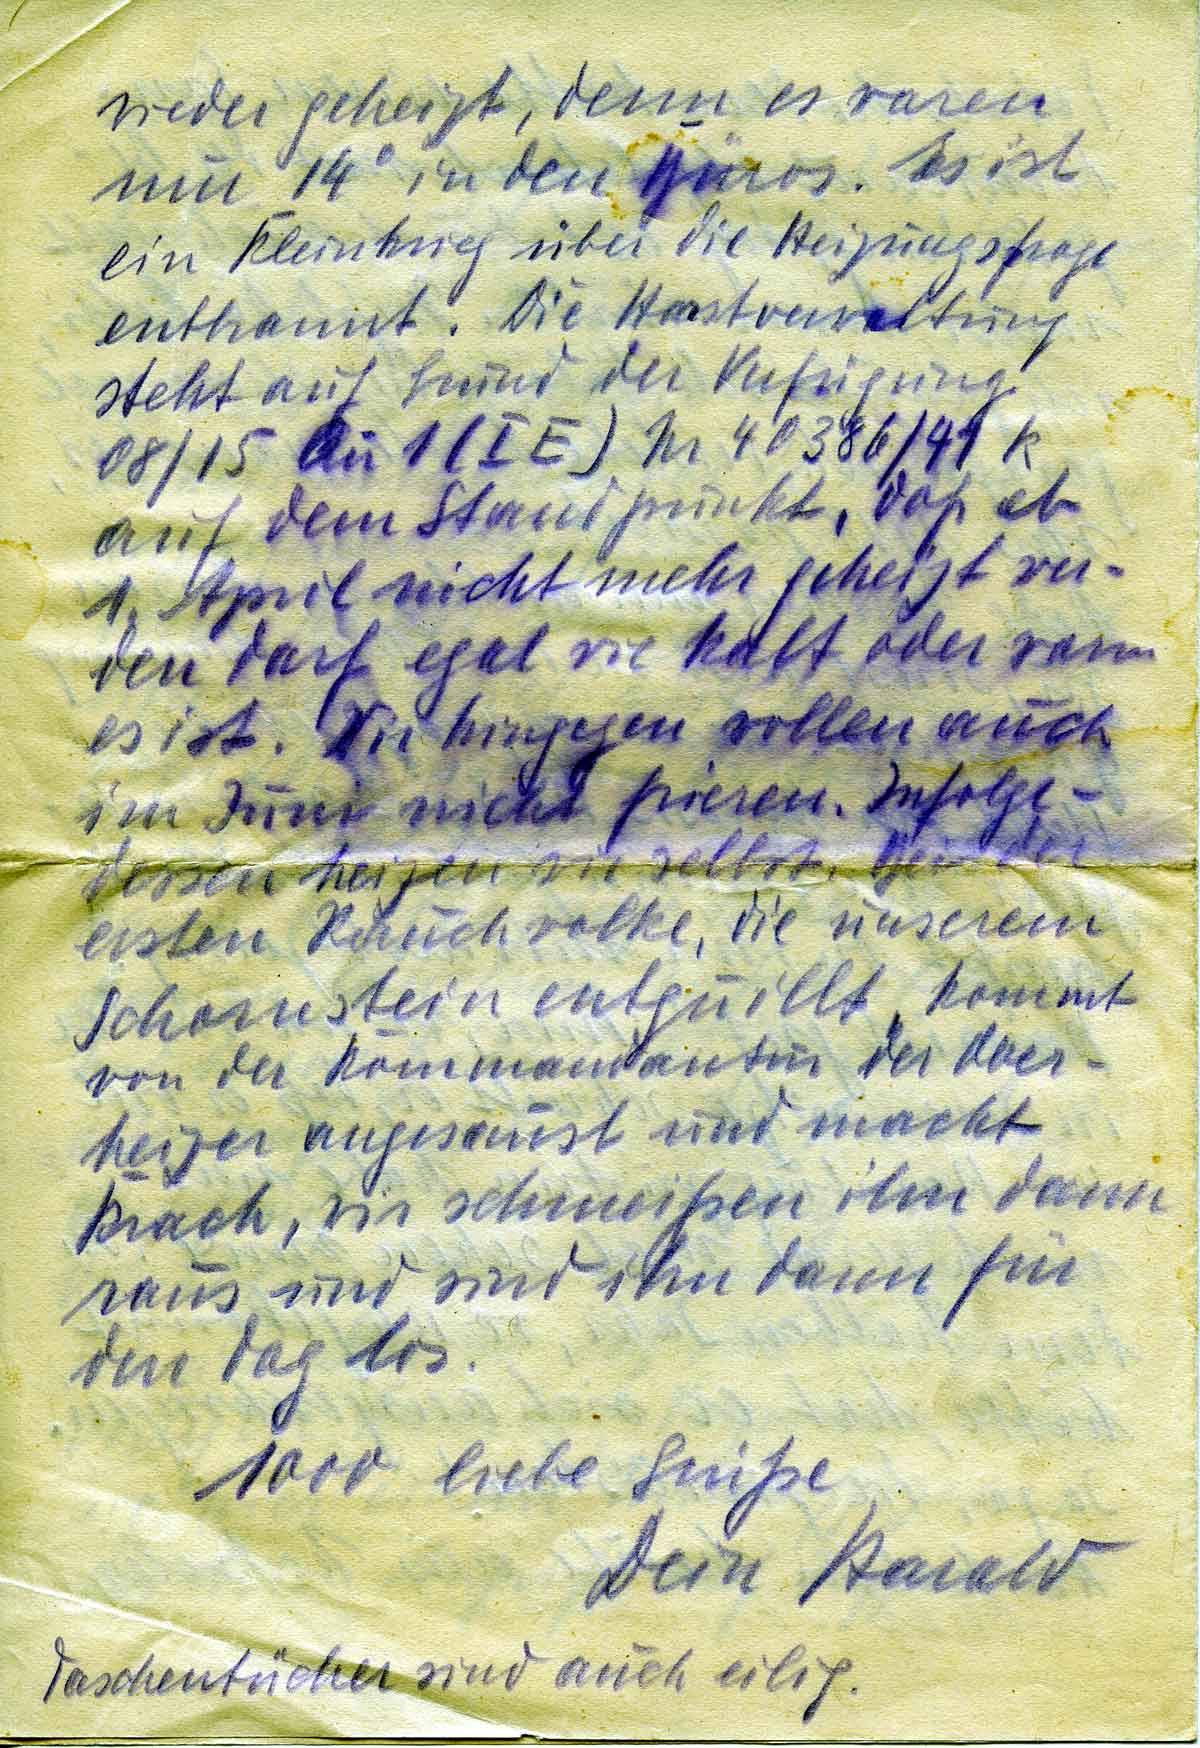 wieder geheizt, denn es waren
nur 14° in den Büros. Es ist
ein Kleinkrieg über die Heizungsfrage
entbrannt. Die Horstverwaltung
steht auf Grund der Verfügung
08/15 Au 1 (I E) Nr 40386/41 K
auf dem Standpunkt, daß ab
1. April nicht mehr geheizt wer-
den darf egal wie kalt oder warm
es ist. Wir hingegen wollen auch
im Juni nicht frieren. Infolge-
dessen heizen wir selbst. Bei der
ersten Rauchwolke, die unserem
Schornstein entquillt, kommt
von der Kommandantur der Ober-
heizer angesaust und macht
Krach, wir schmeißen ihn dann
raus und sind ihn dann für
den Tag los.
1000 liebe Grüße
Dein Harald
Taschentücher sind auch eilig.